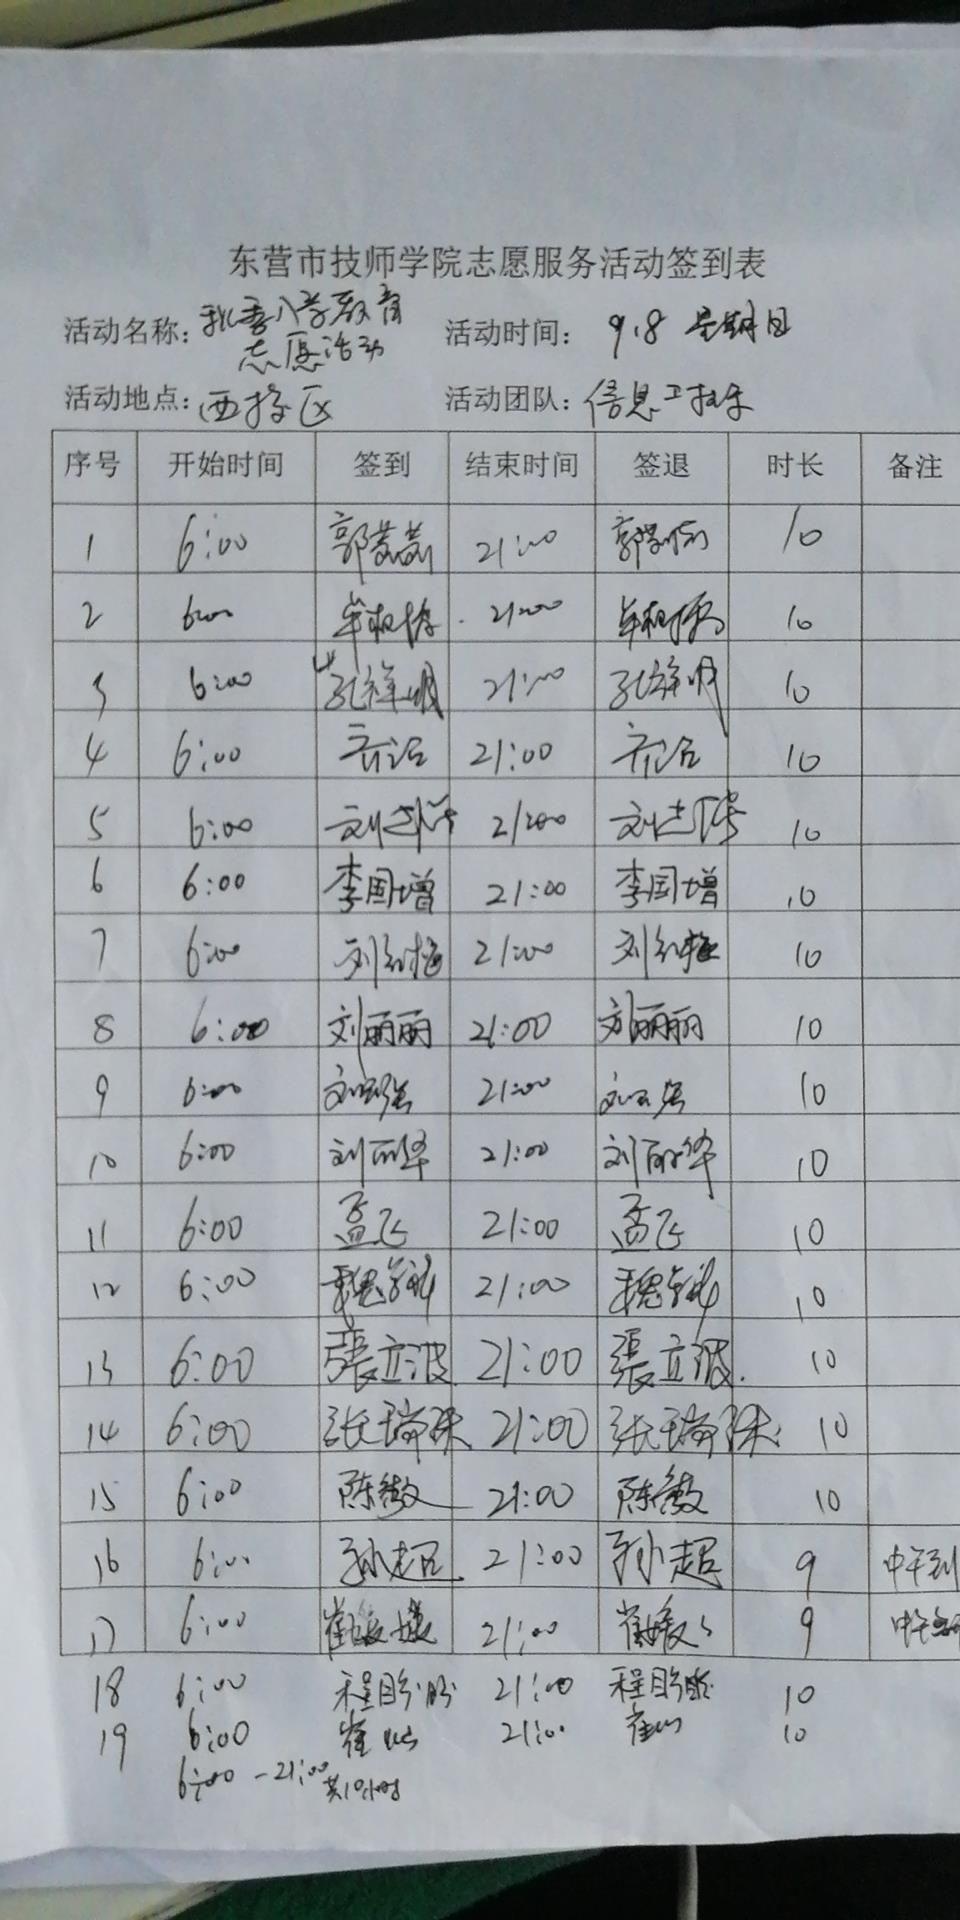 东营市技师学院志愿服务活动签到表
活动名称：秋季入学教育 活动时间：9.8 星期日
志愿活动
活动地点：西校区 活动团队：信息工程系
序号 开始时间 签到 结束时间 签退 时长 备注
1 6:00 21:00 10
2 6:00 21:00 10
3 6:00 孔祥明 21:00 孔祥明 10
4 6:00 乔治 21:00 乔治 10
5 6:00 21:00 10
6 6:00 李国增 21:00 李国增 10
7 6:00 刘红梅 21:00 刘红梅 10
8 6:00 刘丽丽 21:00 刘丽丽 10
9 6:00 21:00 10
10 6:00 刘丽华 21:00 刘丽华 10
11 6:00 孟飞 21:00 孟飞 10
12 6:00 21:00 10
13 6:00 張立波 21:00 張立波 10
14 6:00 张瑞珠 21:00 张瑞珠 10
15 6:00 陈微 21:00 陈微 10
16 6:00 孙超 21:00 孙超 9 中午到
17 6:00 21:00 9
18 6:00 程盼盼 21:00 程盼盼 10
19 6:00 21:00 10
6:00-21:00 共10小时